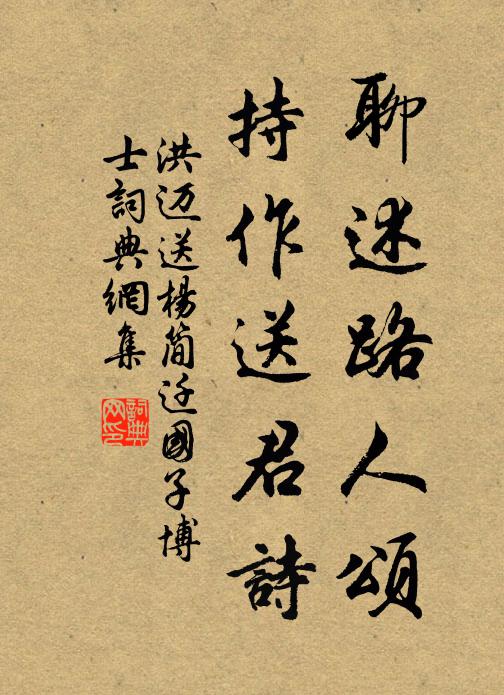 聊述路人頌
持作送君詩
洪迈送楊简迁國子博
士詞典網集
詞典
网印